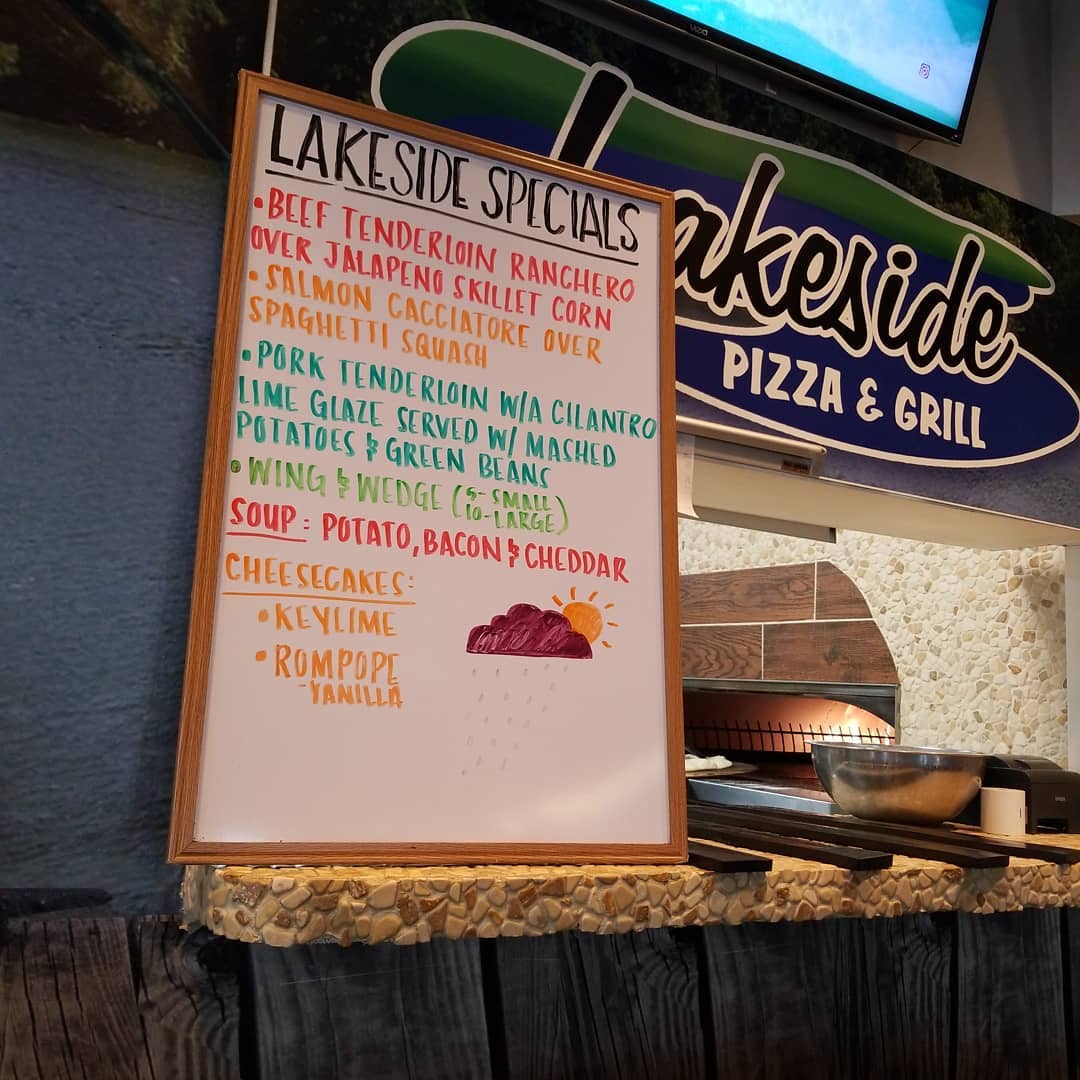 VIZIO
LAKESIDE SPECIALS
• BEEF TENDERLOIN RANCHERO
OVER JALAPENO SKILLET CORN
• SALMON CACCIATORE OVER
SPAGHETTI SQUASH
• PORK TENDERLOIN W/A CILANTRO
LIME GLAZE SERVED W/ MASHED
POTATOES & GREEN BEANS
• WING & WEDGE (5-SMALL
10-LARGE)
SOUP: POTATO, BACON & CHEDDAR
CHEESECAKES:
• KEYLIME
• ROMPOPE
-VANILLA
Lakeside
PIZZA & GRILL
EPSON